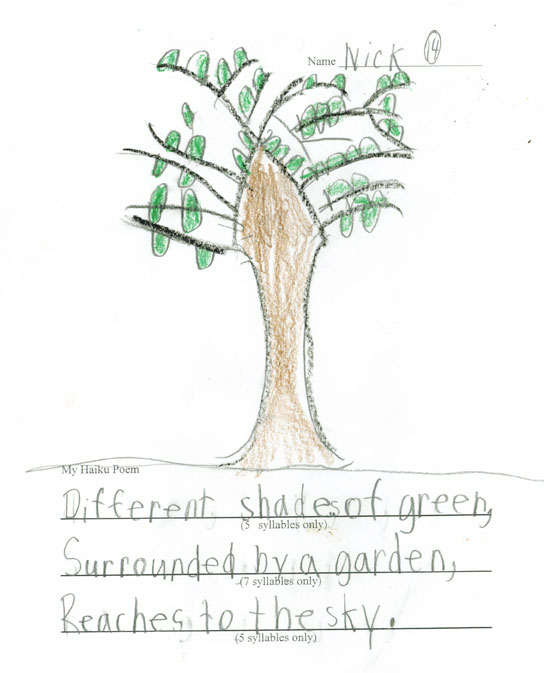 Name Nick 14
My Haiku Poem
Different shades of green,
(5 syllables only)
Surrounded by a garden,
(7 syllables only)
Reaches to the sky.
(5 syllables only)